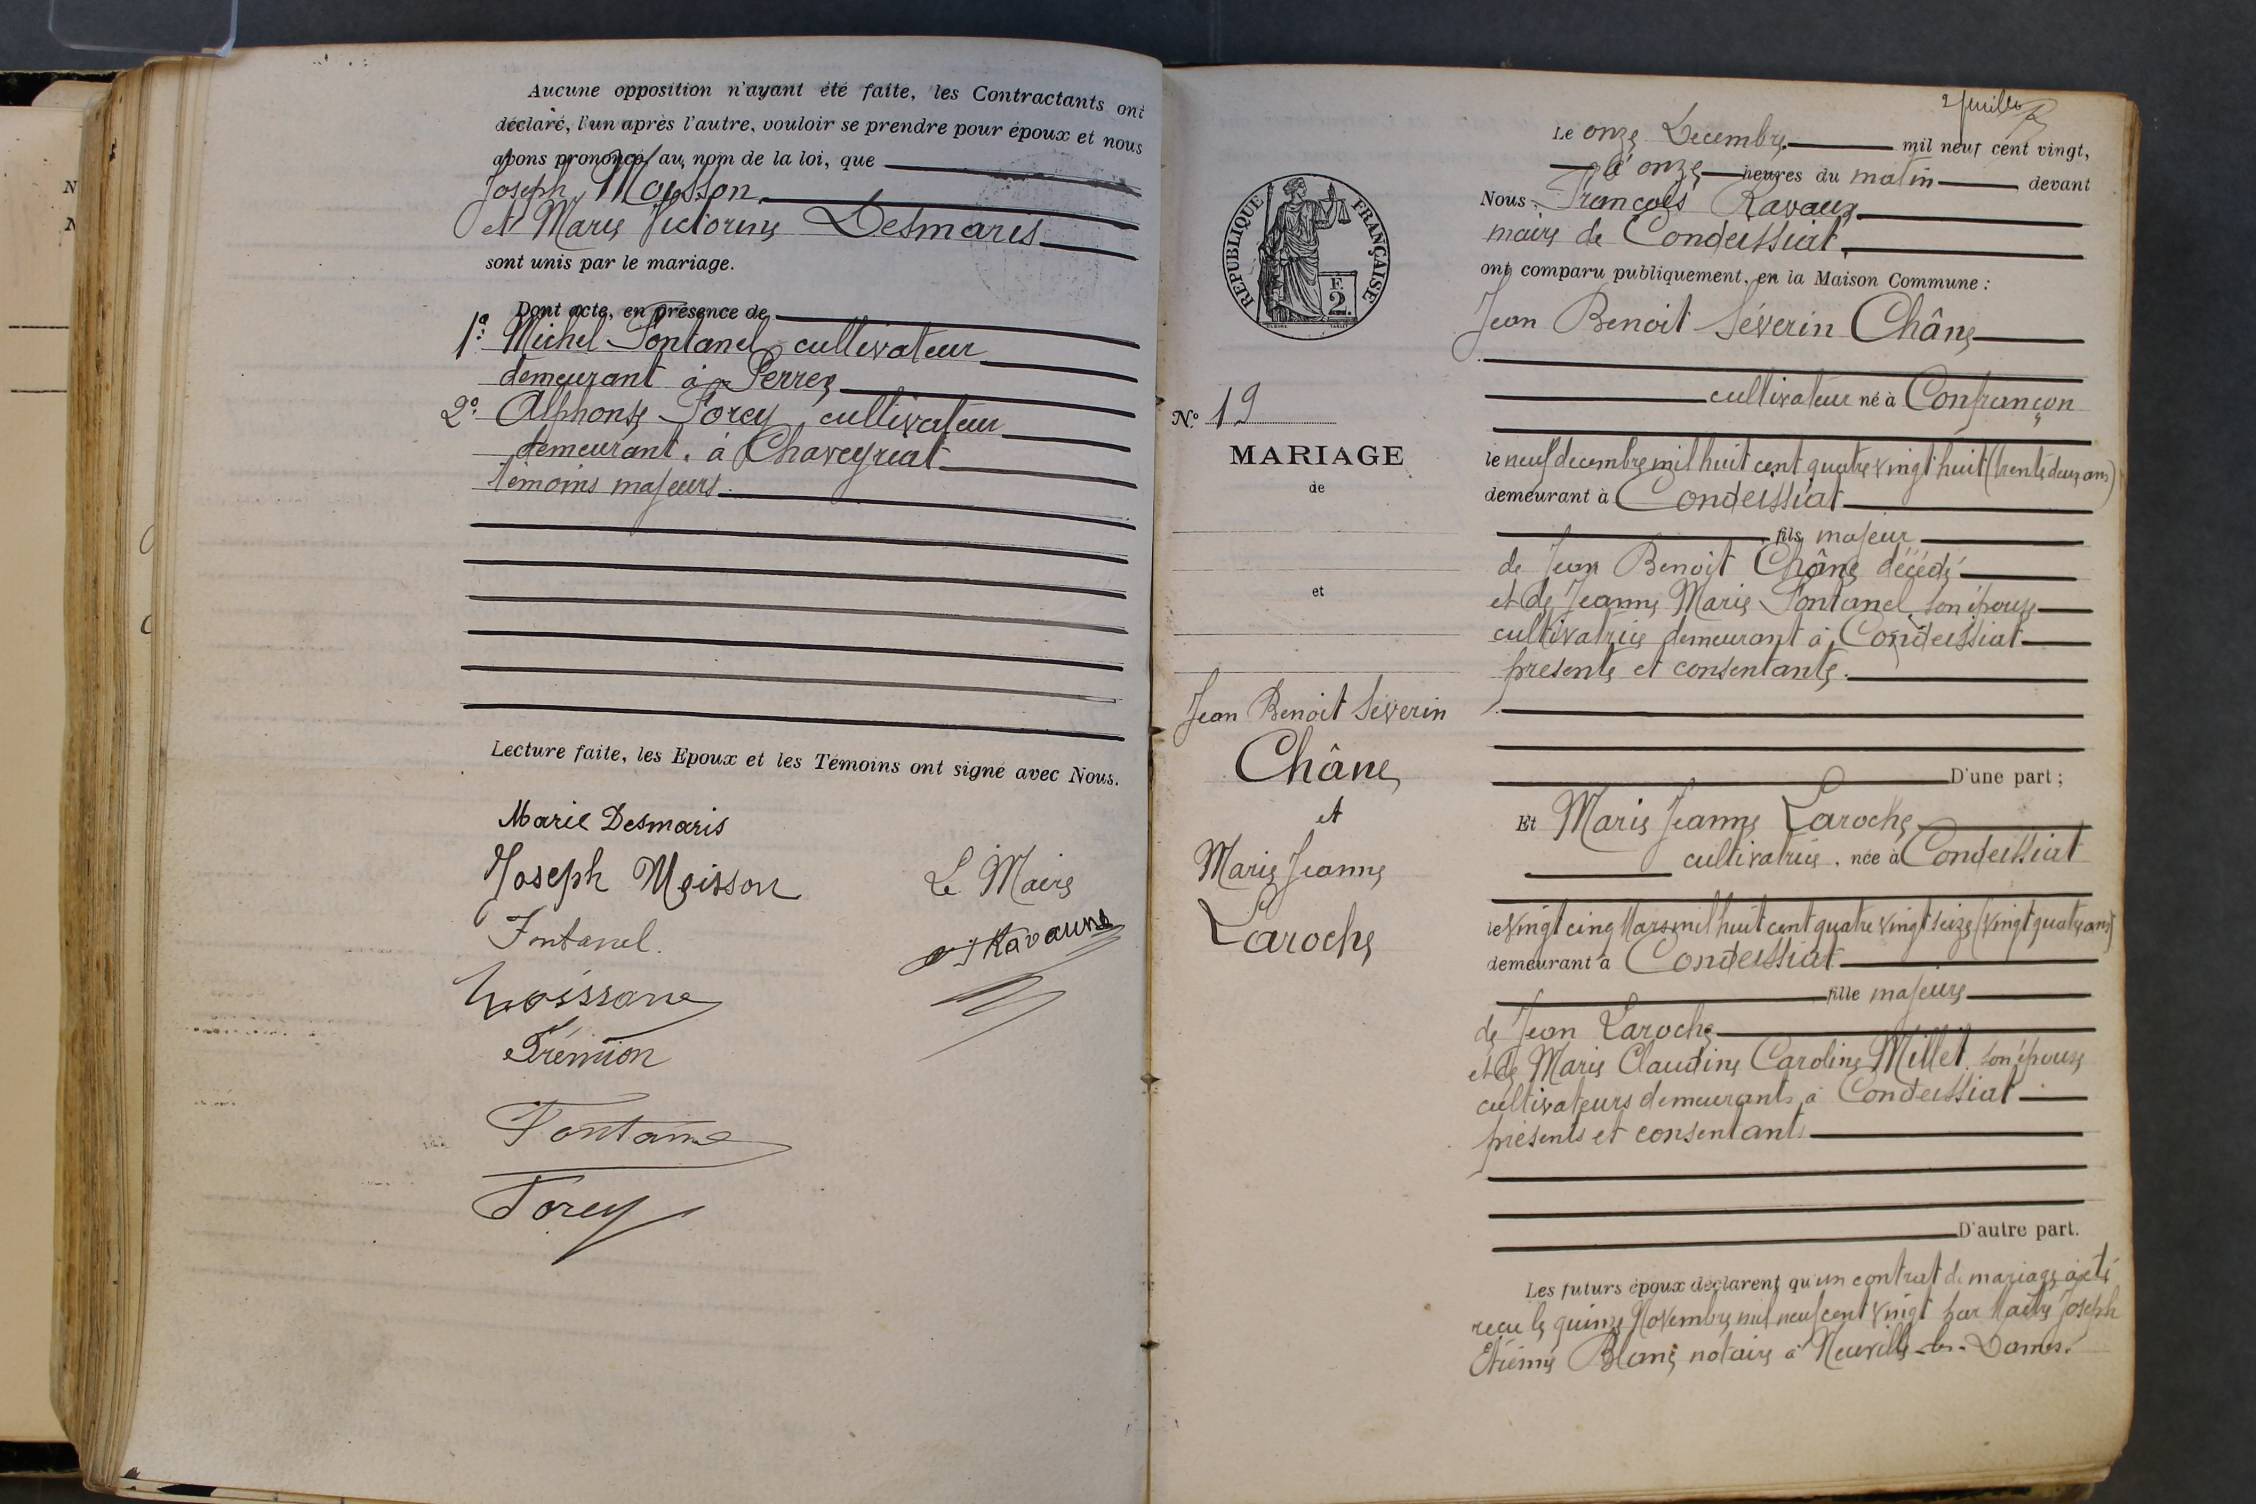 Aucune opposition n'ayant été faite, les Contractants ont
déclaré, l'un après l'autre, vouloir se prendre pour époux et nous
avons prononcé, au nom de la loi, que
Joseph Moisson
et Marie Victorine Desmaris
sont unis par le mariage.
Dont acte, en présence de
1º: Michel Fontanel cultivateur
demeurant à Perrex
2º: Alphonse Forey cultivateur
demeurant à Chaveyriat
témoins majeurs.
Lecture faite, les Epoux et les Témoins ont signé avec Nous.
Marie Desmaris
Joseph Moisson
Le Maire
Fontanel.
Ravaux
Moissone
Prémion
Fontaine
Forey
RÉPUBLIQUE FRANÇAISE
F.
2.
Nº 19
MARIAGE
de
et
Jean Benoit Séverin
Châne
et
Marie Jeanne
Laroche
2 feuille
Le onze Décembre mil neuf cent vingt,
à onze heures du matin devant
Nous François Ravaux
maire de Condeissiat,
ont comparu publiquement, en la Maison Commune :
Jean Benoit Séverin Châne
cultivateur né à Confrançon
le neuf décembre mil huit cent quatre vingt huit (trente deux ans)
demeurant à Condeissiat
fils majeur
de Jean Benoit Châne décédé
et de Jeanne Marie Fontanel son épouse
cultivatrice demeurant à Condeissiat
présente et consentante.
D'une part ;
Et Marie Jeanne Laroche
cultivatrice, née à Condeissiat
le vingt cinq Mars mil huit cent quatre vingt seize (vingt quatre ans)
demeurant à Condeissiat
fille majeure
de Jean Laroche
et de Marie Claudine Caroline Millet son épouse
cultivateurs demeurants à Condeissiat
présents et consentants
D'autre part.
Les futurs époux déclarent qu'un contrat de mariage a été
reçu le quinze Novembre mil neuf cent vingt par Maître Joseph
Etienne Blanc notaire à Neuville-les-Dames.